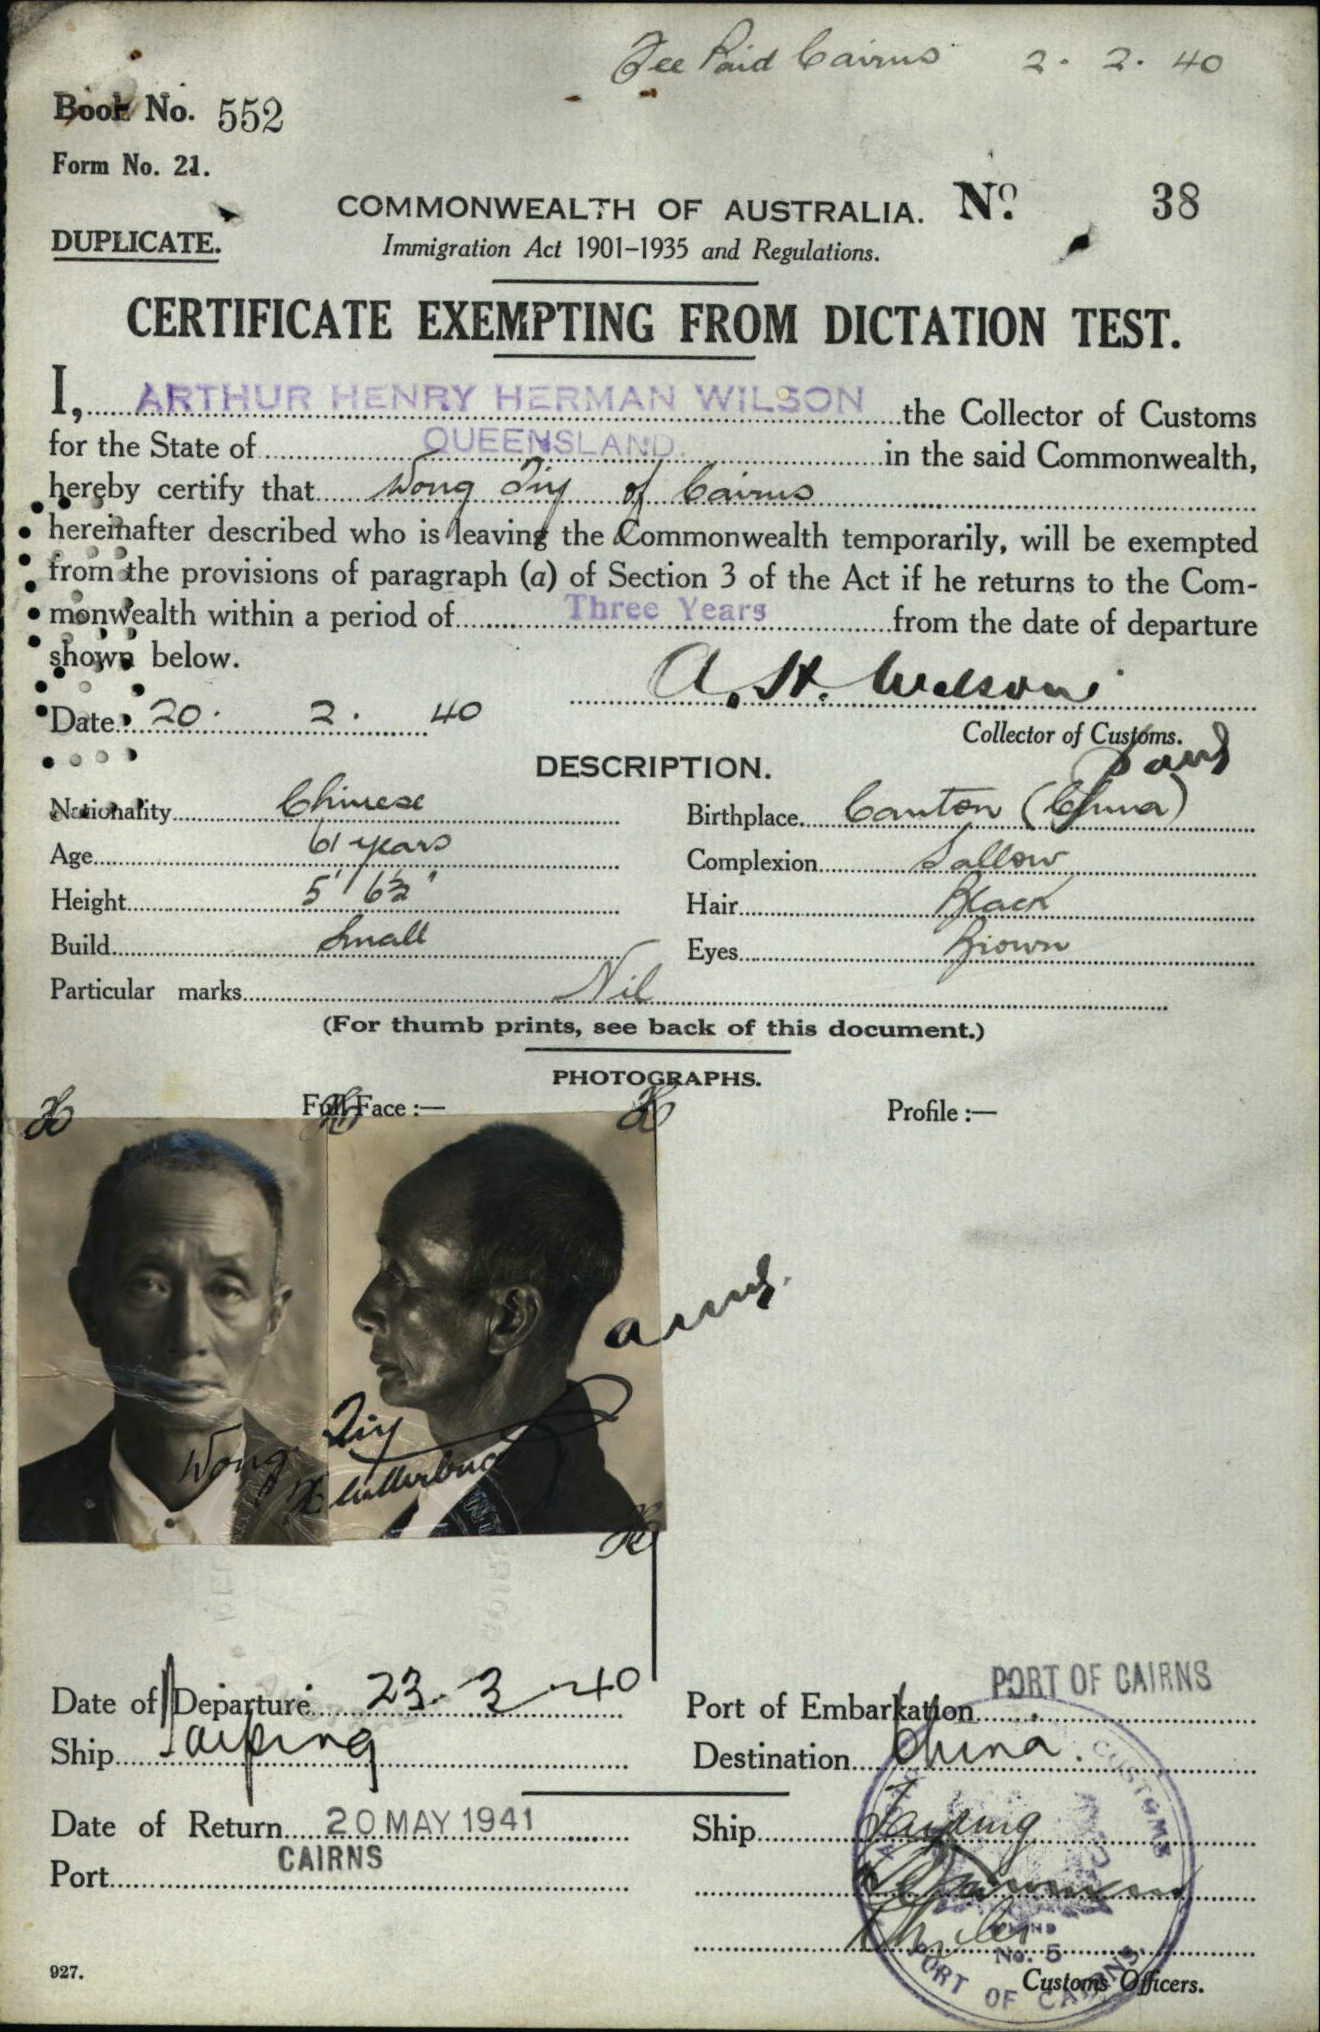 Fee Paid Cairns 2. 2. 40
Book No. 552
Form No. 21.
COMMONWEALTH OF AUSTRALIA. No. 38
DUPLICATE.
Immigration Act 1901–1935 and Regulations.
CERTIFICATE EXEMPTING FROM DICTATION TEST.
I, ARTHUR HENRY HERMAN WILSON the Collector of Customs
for the State of QUEENSLAND. in the said Commonwealth,
hereby certify that Wong Tiy of Cairns
hereinafter described who is leaving the Commonwealth temporarily, will be exempted
from the provisions of paragraph (a) of Section 3 of the Act if he returns to the Com-
monwealth within a period of Three Years from the date of departure
shown below.
A. H. Wilson
Date 20. 2. 40
Collector of Customs.
DESCRIPTION.
Nationality Chinese Birthplace Canton (China)
Age 61 years Complexion Sallow
Height 5' 6½" Hair Black
Build Small Eyes Brown
Particular marks Nil
(For thumb prints, see back of this document.)
PHOTOGRAPHS.
Full Face :— Profile :—
Wong Tiy
Date of Departure 23-3-40 Port of Embarkation PORT OF CAIRNS
Ship Taiping Destination China.
Date of Return 20 MAY 1941 Ship Taiping
Port CAIRNS
CUSTOMS
No. 5
PORT OF CAIRNS
Customs Officers.
927.